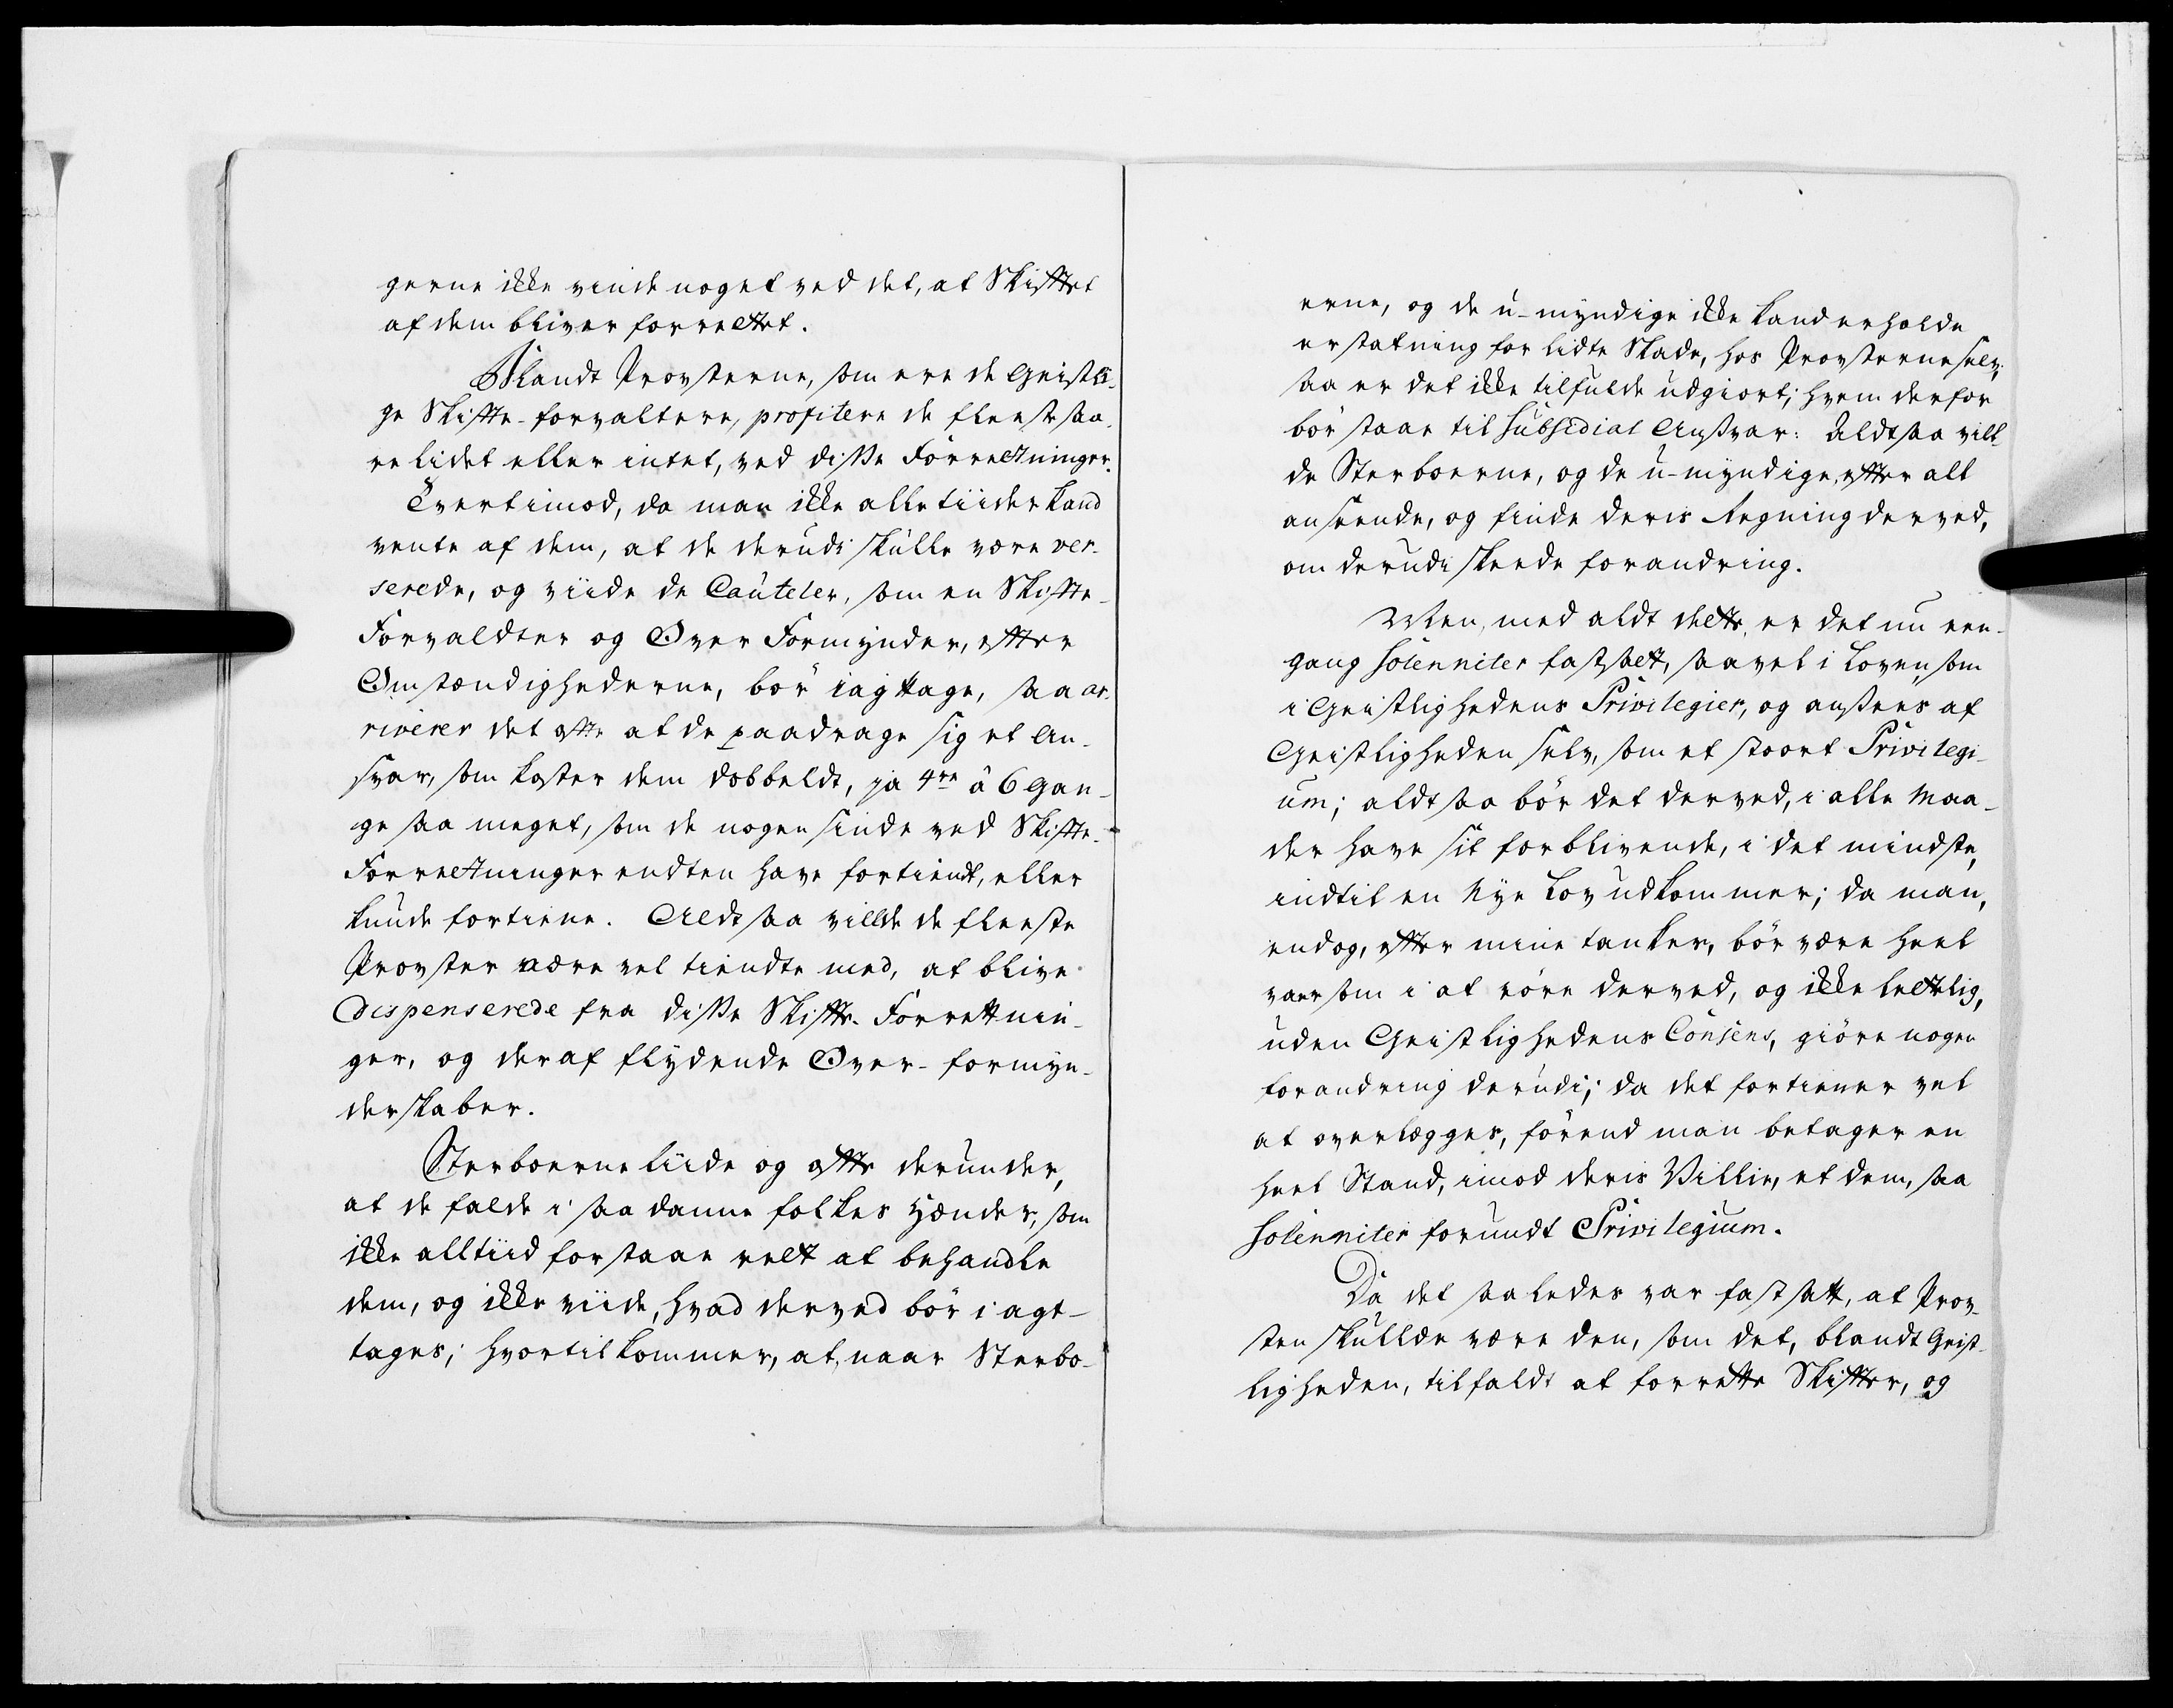 gerne ikke vinde noget ved det, at Skifftet
af dem bliver forrettet.
Blandt Provsterne, som ere de Geistli-
ge Skiffte-forvaltere, profitere de fleeste saa-
re lidet eller intet, ved disse Forretninger.
Tvertimod, da man ikke alle tiider kand
vente af dem, at de derudi skulle være ver-
serede, og viide de Cauteler, som en Skiffte-
Forvaldter og Over Formynder, effter
Omstændighederne, bör iagttage, saa ar-
riverer det offte at de paadrage sig et An-
svar, som koster dem dobbeldt, ja 4re â 6 gan-
ge saa meget, som de nogensinde ved Skiffte-
Forretninger endten have fortiendt, eller
kunde fortiene. Aldtsaa villde de fleeste
Provster være vel tiendte med, at blive
dispenserede fra disse Skiffte-Forrettnin-
ger, og deraf flydende Over-formyn-
derskaber.
Sterboerne liide og offte derunder,
at de falde i saadanne folkes Hænder, som
ikke alltiid forstaae rett at behandle
dem, og ikke viide, hvad derved bör iagt-
tages; hvortil kommer, at, naar Sterbo-
erne, og de u-myndige ikke kand erholde
erstatning for lidte Skade, hos Provsterne selv,
saa er det ikke tilfulde udgiort; hvem derfor
bör staae til subsidial Ansvar: Aldtsaa vill-
de Sterboerne, og de u-myndige, effter all
anseende, og finde deris Regning derved,
om derudi skeede forandring.
Men, med aldt dette, er det nu een-
gang solenniter fastsatt, saavel i Loven, som
i Geistlighedens Privilegier, og ansees af
Geistligheden selv, som et stoort Privilegi-
um; aldtsaa bör det derved, i alle Maa-
der have sit forblivende, i det mindste,
indtil en Nye Lov udkommer; da man,
endog, effter mine tanker, bör være heel
varsom i at röre derved, og ikke lettelig,
uden Geistlighedens Consens, giöre nogen
forandring derudi; da det fortiener vel
at overlægges, förend man betager en
heel Stand, imod deris Villie, et dem, saa
solenniter forundt Privilegium.
Da det saaledes var fastsatt, at Prov-
sten skullde være den, som det, blandt Geist-
ligheden, tilfaldt at forrette Skiffter, og